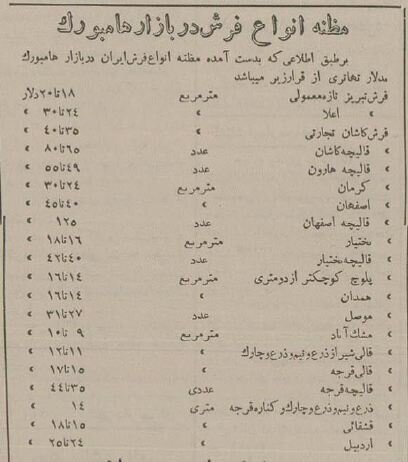 مظنه انواع فرش در بازار هامبورك
برطبق اطلاعی که بدست آمده مظنه انواع فرش ایران دربازار هامبورك
بدلار تهاتری از قرار زیر میباشد
فرش تبریز تازه معمولی مترمربع ۱۸ تا ۲۰ دلار
» اعلا » ۲۴ تا ۳۰ »
فرش کاشان تجارتی » ۳۵ تا ۴۰ »
» قالیچه کاشان عدد ۶۵ تا ۸۰ »
» قالیچه هارون عدد ۴۹ تا ۵۵ »
» کرمان مترمربع ۲۴ تا ۳۰ »
» اصفهان » ۴۰ تا ۴۵ »
» قالیچه اصفهان عدد ۱۲۵ »
» بختیار مترمربع ۱۶ تا ۱۸ »
» قالیچه بختیار عدد ۴۰ تا ۴۲ »
» بلوچ کوچکتر از دومتری مترمربع ۱۴ تا ۱۶ »
» همدان » ۱۴ تا ۱۶ »
» موصل عدد ۲۷ تا ۳۱ »
» مشك آباد مترمربع ۹ تا ۱۰ »
» قالی شیراز ذرع و نیم و ذرع و چارك » ۱۱ تا ۱۲ »
» قالی قرجه » ۱۵ تا ۱۷ »
» قالیچه قرجه عددی ۳۵ تا ۴۴ »
» ذرع و نیم و ذرع و چارك و کناره قرجه متری ۱۴ »
» قشقائی » ۱۵ تا ۱۸ »
» اردبیل » ۲۴ تا ۲۵ »